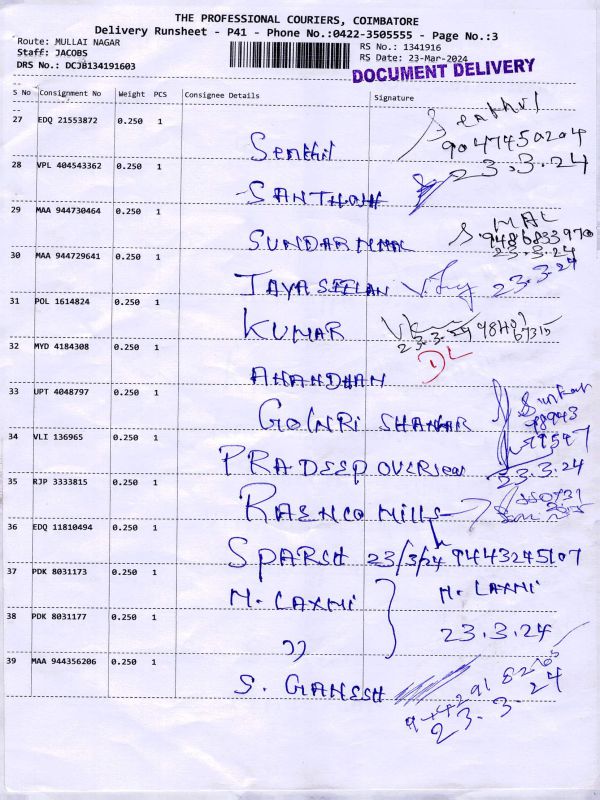 THE PROFESSIONAL COURIERS, COIMBATORE
Delivery Runsheet - P41 - Phone No.:0422-3505555 - Page No.:3
Route: MULLAI NAGAR
Staff: JACOBS
DRS No.: DCJ8134191603
RS No.: 1341916
RS Date: 23-Mar-2024
DOCUMENT DELIVERY
S No Consignment No Weight PCS Consignee Details Signature
27 EDQ 21553872 0.250 1 Senthil Senthil
9047450204
23.3.24
28 VPL 404543362 0.250 1 SANTHOSH
29 MAA 944730464 0.250 1 S. MAL
9486833970
23.3.24
30 MAA 944729641 0.250 1 JAYASEELAN 23.3.24
31 POL 1614824 0.250 1 KUMAR
23.3.24
DL
32 MYD 4184308 0.250 1 ANANDHAN
33 UPT 4048797 0.250 1 SHANKAR
98943
34 VLI 136965 0.250 1 PRADEEP
23.3.24
35 RJP 3333815 0.250 1 Mills
36 EDQ 11810494 0.250 1 SPARSH 23/3/24 9443245107
37 PDK 8031173 0.250 1 M. LAXMI M. LAXMI
38 PDK 8031177 0.250 1 ,, 23.3.24
39 MAA 944356206 0.250 1 S. GANESH
23.3.24